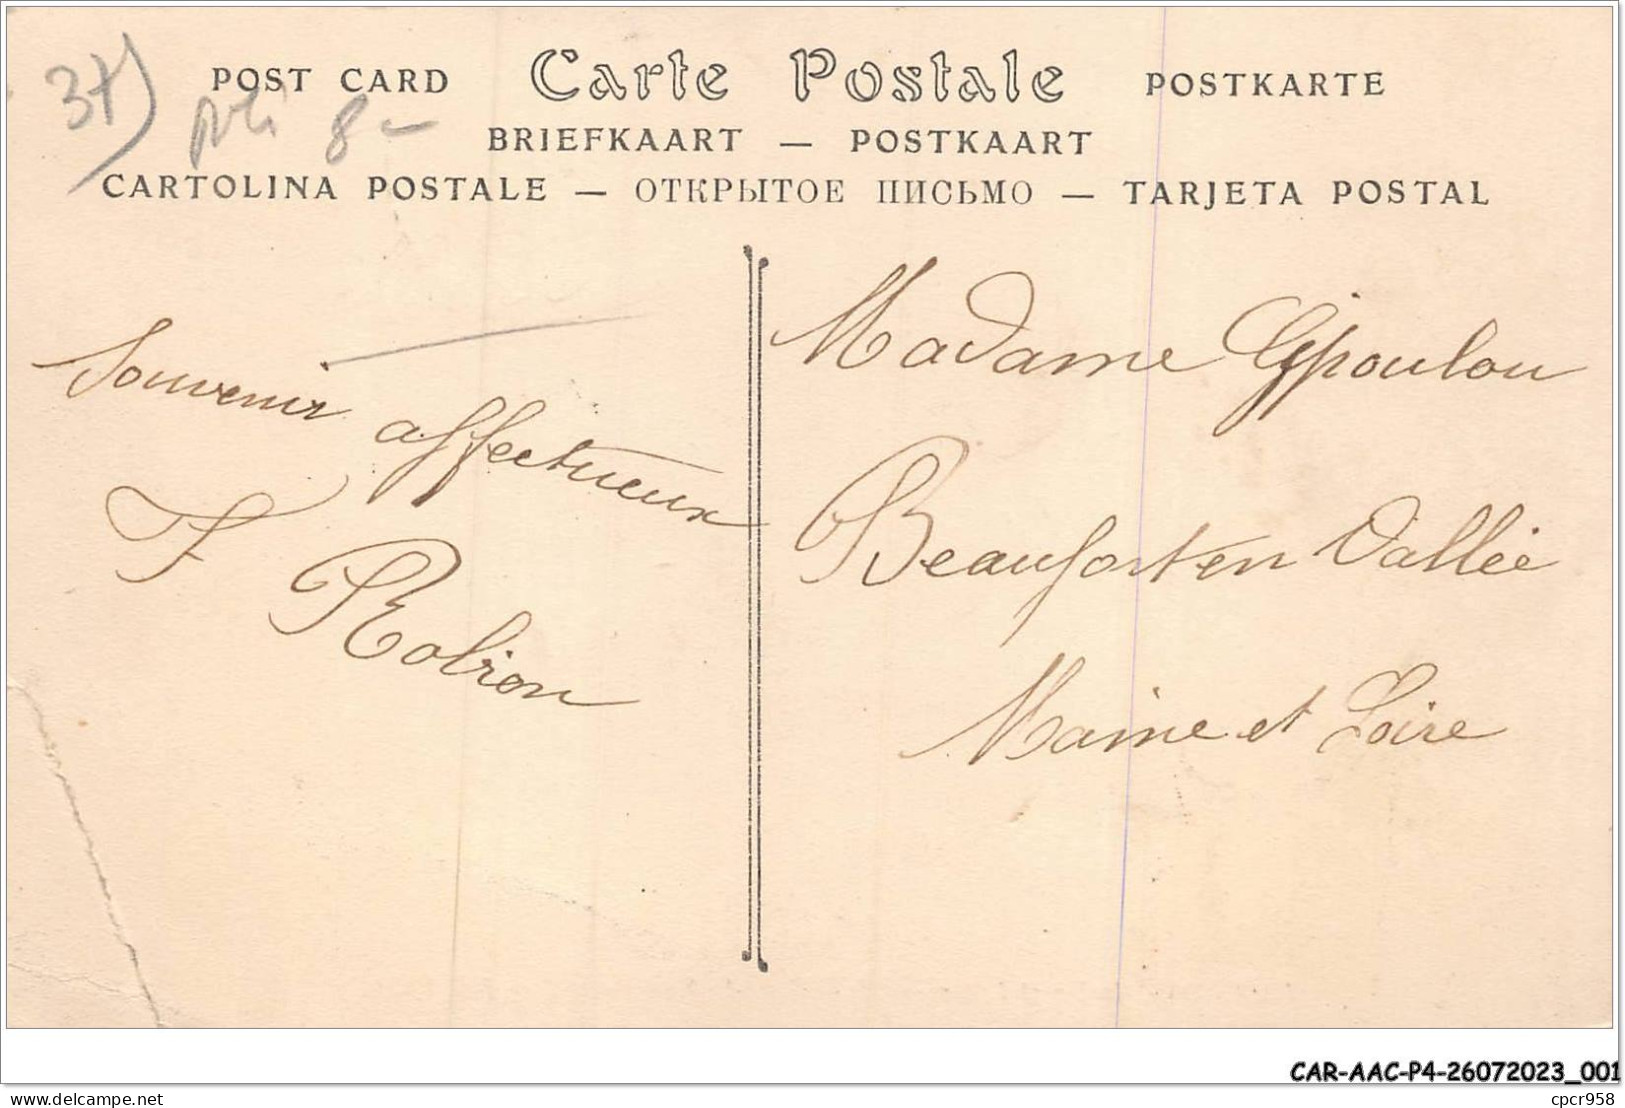 37)
pli 8 -
POST CARD Carte Postale POSTKARTE
BRIEFKAART — POSTKAART
CARTOLINA POSTALE — ОТКРЫТОЕ ПИСЬМО — TARJETA POSTAL
Souvenir affectueux
F Robion
Madame
Beaufort en Vallée
Maine et Loire
CAR-AAC-P4-26072023_001
delcampe.net
cpcr958